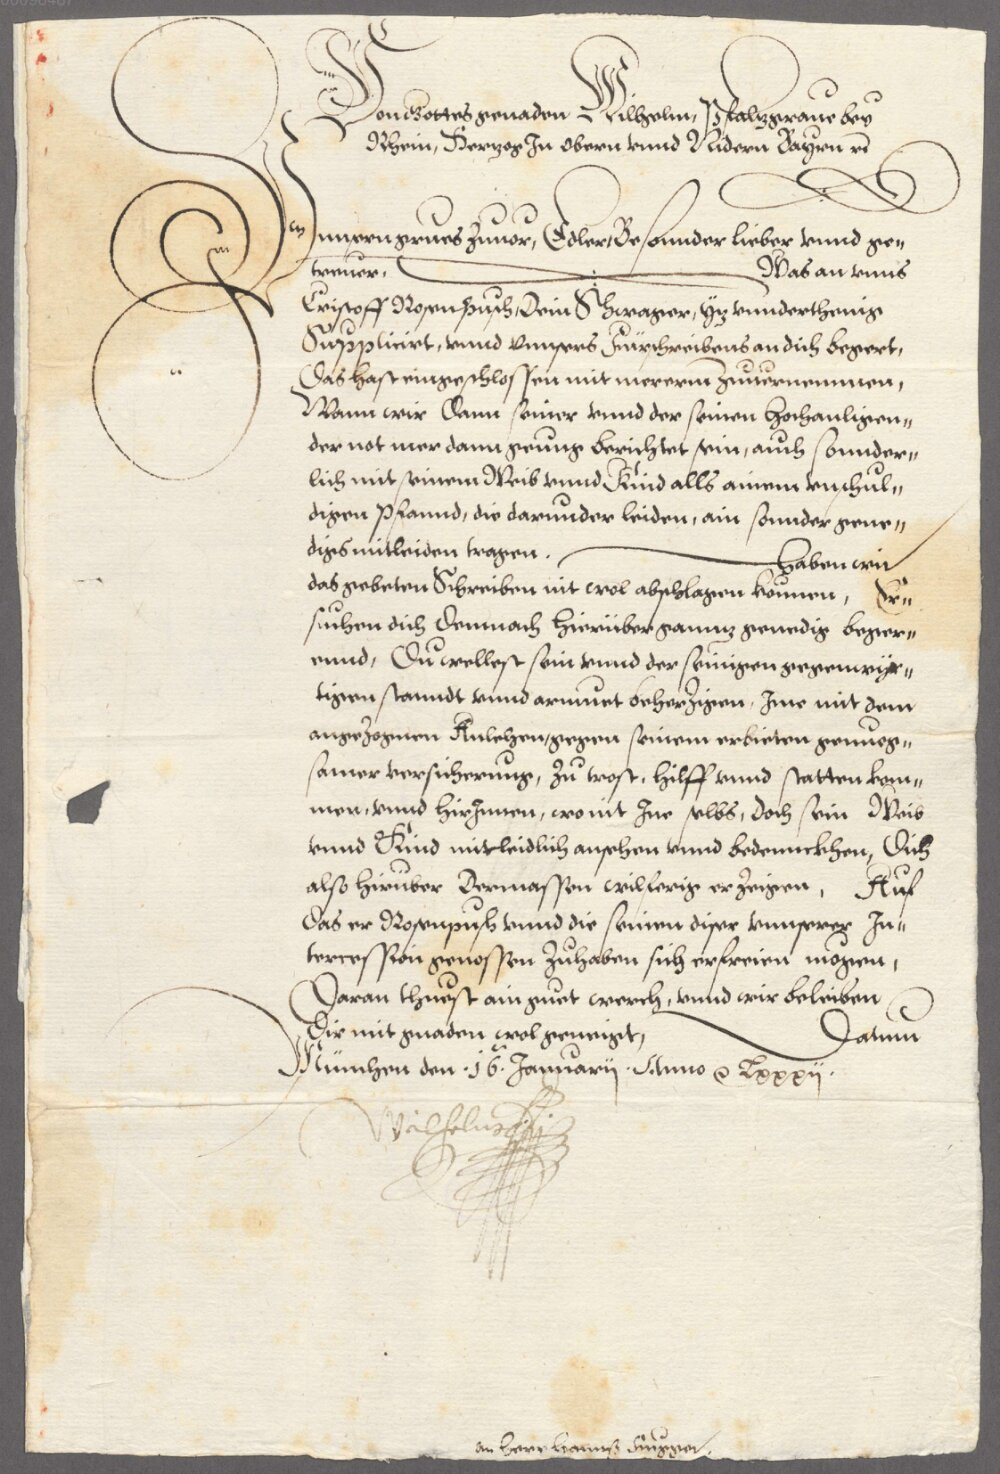 Von Gottes genaden Wilhelm, Pfaltzgraue bey
Rhein, Hertzog In Obern vnnd Nidern Bayrn ec
Vnnsern grues zuuor, Edler, Besonnder lieber vnnd ge„
treuer. Was an vnns
Cristoff Rosenpusch, Dein Schwager, yz vnnderthenig
Supplicirt, vnnd vnnsers Fürschreibens an dich begert,
Das hast eingeschlossen mit mererm zuuernemmen,
Wann wir Dann seiner vnnd der seinen hochanligen„
der not mer dann genueg berichtet sein, auch sonnder„
lich mit seinem Weib vnnd Kind alls ainem vnschul„
digen Pfannd, die darunder leiden, ain sonnder gene„
digs mitleiden tragen. haben wir
das gebeten Schreiben nit wol abschlagen konnen, Er„
suchen dich Demnach hierüber gannz genedig beger„
ennd, Du wellest sein vnnd der seinigen gegenwür„
tigen stanndt vnnd armuet beherzigen, Ime mit dem
angezognen Anlehen, gegen seinem erbieten genueg„
samer versicherung, zu trost, hilff vnnd statten kom„
men, vnnd hirInnen, wo nit Ine selbs, doch sein Weib
vnnd Kind mitleidlich ansehen vnnd bedennckhen, Dich
also hirüber Dermassen wilferig erzeigen, Auf
Das er Rosenpusch vnnd die seinen diser vnnserer In„
tercession genossen zuhaben sich erfreien mögen,
Daran thuest ain guet werch, vnnd wir beleiben
Dir mit gnaden wol geneigt, Datum
München den .16. Januarij. Anno ec Lxxxij.
Wilhelm
an Herr Hanns Fugger.